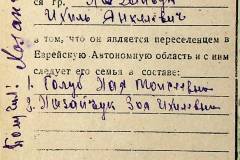 ся гр.
Ихиль Анкелевич
в том, что он является переселенцем в
Еврейскую Автономную область и с ним
следует его семья в составе:
1. Голуб Пая Моисеевна
2. Пазайчук Зоя Ихилевна
Получил: